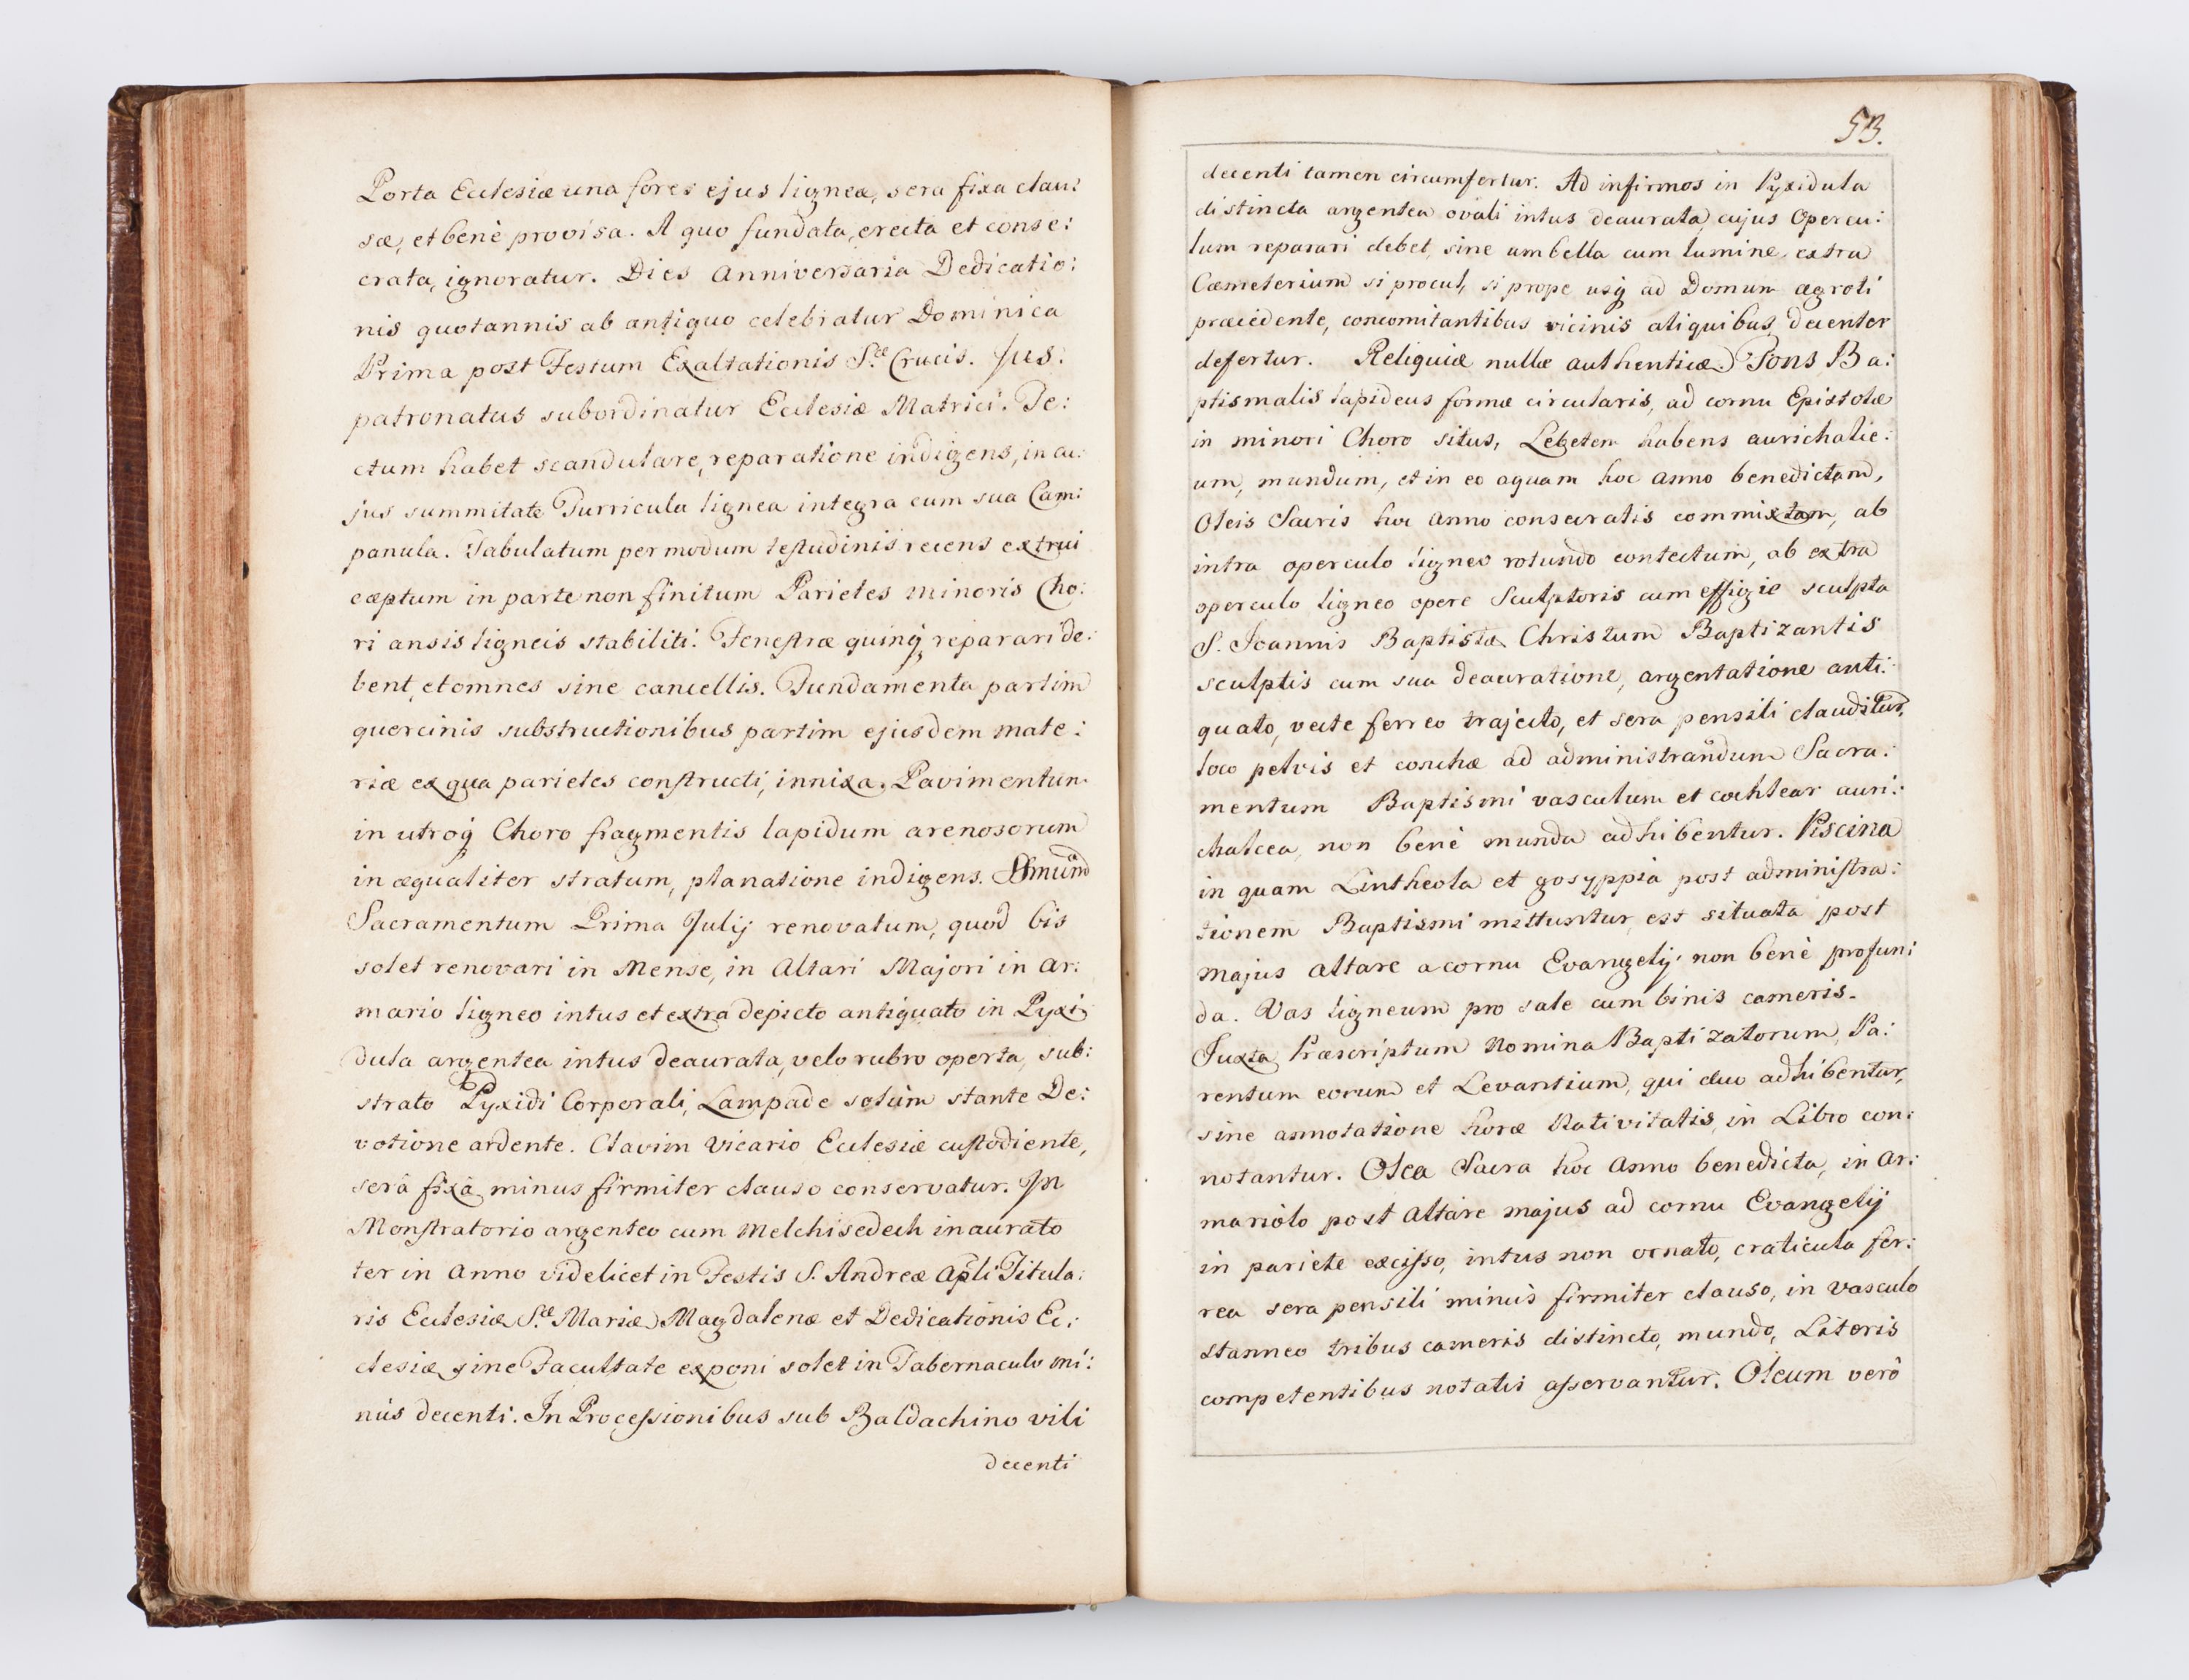 Porta Ecclesiæ una fores ejus ligneæ, sera fixa clau:
sæ, et benè provisa. A quo fundata, erecta et conse:
crata, ignoratur. Dies Anniversaria Dedicatio:
nis quotannis ab antiquo celebratur Dominica
Prima post Festum Exaltationis S.æ Crucis. Jus:
patronatus subordinatur Ecclesiæ Matrici. Te:
ctum habet scandulare, reparatione indigens, in cu:
jus summitate Turricula lignea integra cum sua Cam:
panula. Tabulatum per modum testudinis recens extrui
cæptum in parte non finitum Parietes minoris Cho:
ri ansis ligneis stabiliti. Fenestræ quinq, reparari de:
bent, et omnes sine cancellis. Fundamenta partim
quercinis substructionibus partim ejusdem mate:
riæ ex qua parietes constructi, innixa. Pavimentum
in utroq Choro fragmentis lapidum arenosorum
inæqualiter stratum, planatione indigens. SSmum
Sacramentum Prima Julij renovatum, quod bis
solet renovari in Mense, in Altari Majori in Ar:
mario ligneo intus et extra depicto antiquato in Pyxi
dula argentea intus deaurata, velo rubro operta, sub:
strato Pyxidi Corporali, Lampade solùm stante De:
votione ardente. Clavim Vicario Ecclesiæ custodiente,
serâ fixâ minus firmiter clauso conservatur. In
Monstratorio argenteo cum Melchisedech inaurato
ter in Anno videlicet in Festis S. Andreæ Apli Titula:
ris Ecclesiæ, S.æ Mariæ Magdalenæ et Dedicationis Ec:
clesiæ, sine Facultate exponi solet in Tabernaculo mi:
nùs decenti. In Processionibus sub Baldachino vili
decenti
53.
decenti tamen circumfertur. Ad infirmos in Pyxidula
distincta argentea ovali intus deaurata, cujus Opercu:
lum reparari debet, sine umbella cum lumine, extra
Cæmeterium si procul, si prope usq ad Domum ægroti
præcedente, concomitantibus vicinis aliquibus, decenter
defertur. Reliquiæ nullæ authenticæ. Fons Ba:
ptismalis lapideus formæ circularis, ad cornu Epistolæ
in minori Choro situs, Lebetem habens aurichalce:
um, mundum, et in eo aquam hoc Anno benedictam,
Oleis Sacris hoc Anno consecratis commixtam, ab
intra operculo ligneo rotundo contectum, ab extra
operculo ligneo opere Sculptoris cum effigie sculpta
S. Joannis Baptistæ Christum Baptizantis
sculptis cum sua deauratione, argentatione anti:
quato, vecte ferreo trajecto, et sera pensili clauditur,
loco pelvis et conchæ ad administrandum Sacra:
mentum Baptismi vasculum et cochlear auri:
chalcea, non benè munda adhibentur. Piscina
in quam Lintheola et gosyppia post administra:
tionem Baptismi mittuntur, est situata post
majus Altare a cornu Evangelij non benè profun:
da. Vas ligneum pro sale cum binis cameris.
Juxta Præscriptum Nomina Baptizatorum, Pa:
rentum eorum et Levantium, qui duo adhibentur,
sine annotatione horæ Nativitatis, in Libro con:
notantur. Olea Sacra hoc Anno benedicta, in Ar:
mariolo post Altare majus ad cornu Evangelij
in pariete exciso, intus non ornato, craticula fer:
rea sera pensili minùs firmiter clauso, in vasculo
stanneo tribus cameris distincto, mundo, Literis
competentibus notatis asservantur. Oleum verò